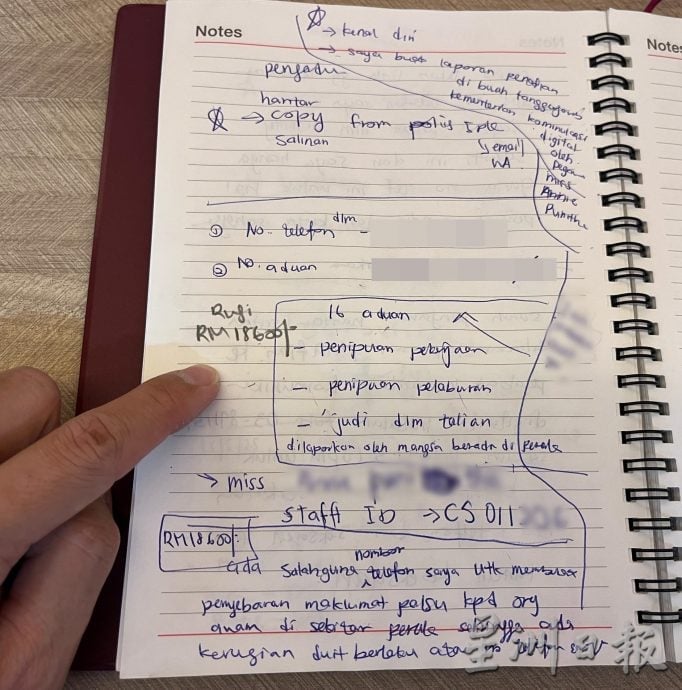 Notes
Notes
→ kenal diri
→ saya buat laporan penafian
di buah tanggungan
kementerian kominukasi
digital
oleh
pegawai
miss
Annie
pengadu
hantar
→ copy from polis Ipk
salinan
email
WA
① No. telefon dlm -
② No. aduan
Rugi
RM18600/-
16 aduan
- penipuan pekerjaan
- penipuan pelaburan
- judi dlm talian
dilaporkan oleh mangsa berada di perak
→ miss
staff ID → CS 011
RM18600/-
ada salahguna nombor telefon saya utk membuat
penyebaran maklumat palsu kpd org
awam di sekitar perak sehingga ada
kerugian duit berlaku atas
星洲日报